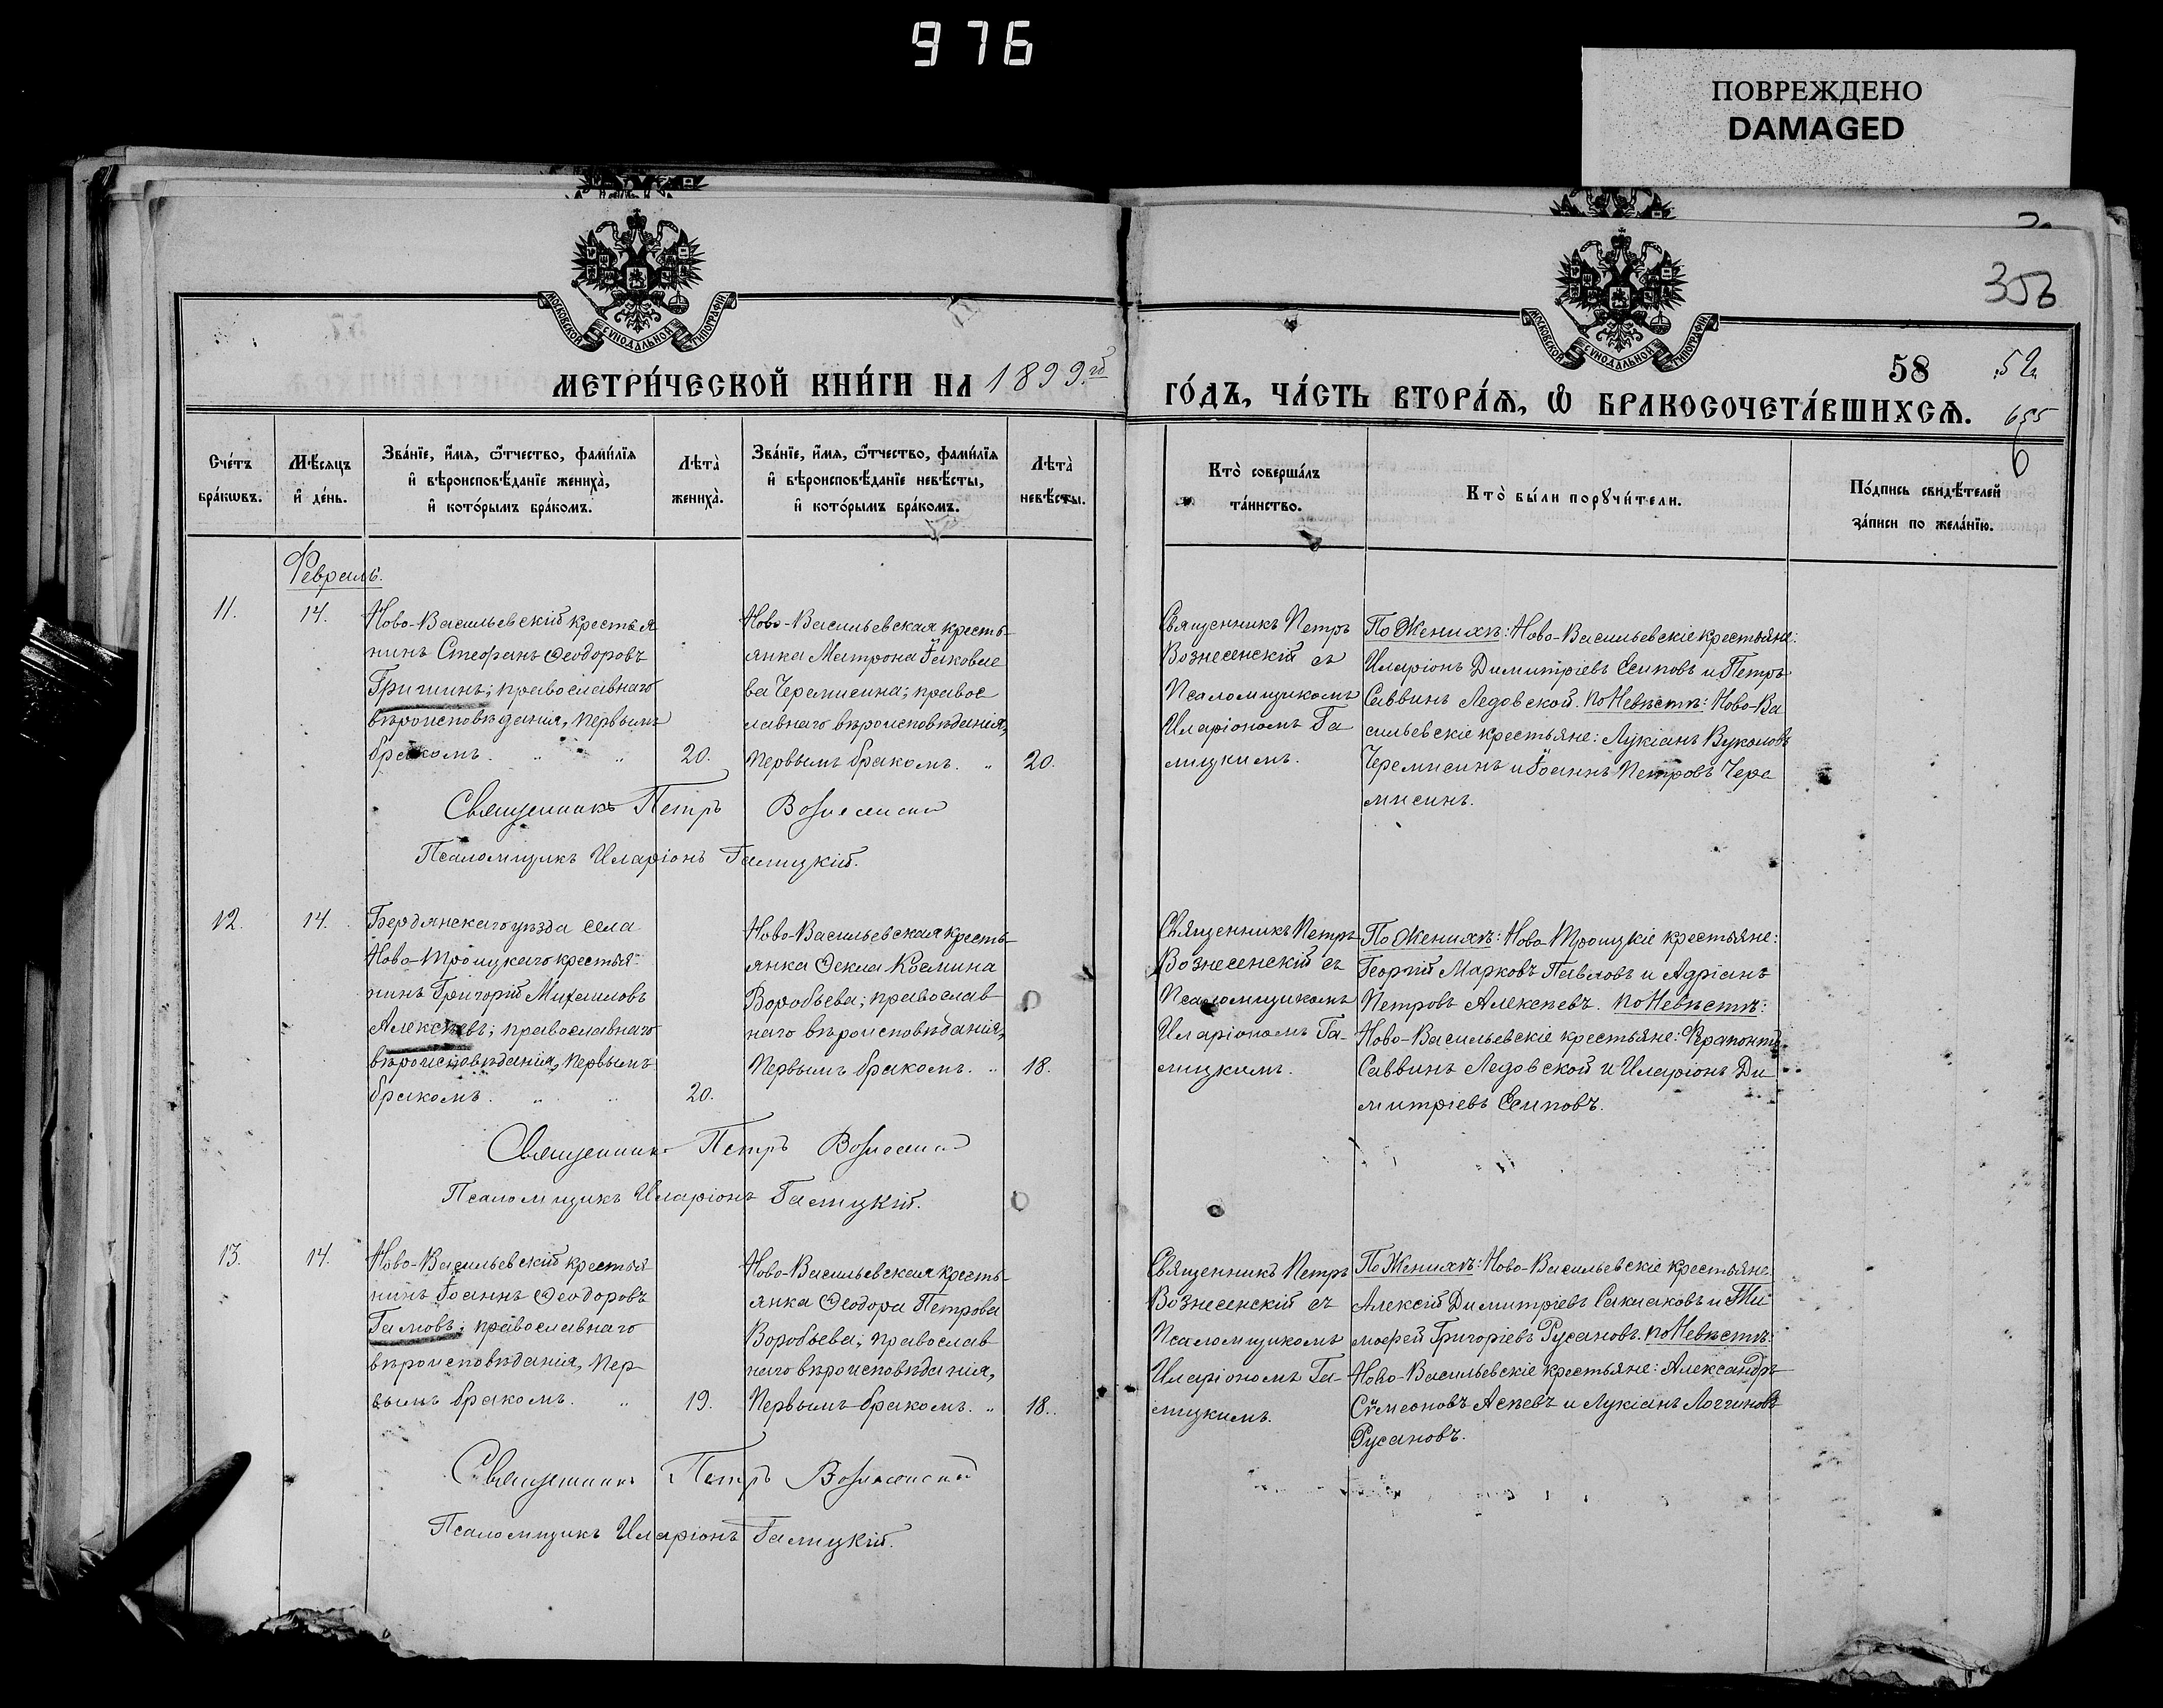 976
ПОВРЕЖДЕНО
DAMAGED
МОСКОВСКОЙ СУНОДАЛЬНОЙ ТИПОГРАФІИ
МОСКОВСКОЙ СУНОДАЛЬНОЙ ТИПОГРАФІИ
МЕТРИ́ЧЕСКОЙ КНИ́ГИ НА 1899.го
ГО́ДЪ, ЧА́СТЬ ВТОРА́Ѧ, Ѡ БРАКОСОЧЕТА́ВШИХСѦ.
58
52
655
6
Сче́тъ бра́кѡвъ.
Мѣ́сяцъ и҆ де́нь.
Зва́нїе, и҆́мя, ѻ҆́тчество, фами́лїя
и҆ вѣроисповѣ́данїе жениха̀,
и҆ кото́рымъ бра́комъ.
Лѣта̀ жениха̀.
Зва́нїе, и҆́мя, ѻ҆́тчество, фами́лїя
и҆ вѣроисповѣ́данїе невѣ́сты,
и҆ кото́рымъ бра́комъ.
Лѣта̀ невѣ́сты.
Кто̀ соверша́лъ та́инство.
Кто̀ бы́ли порꙋчи́тели.
По́дпись свидѣ́телей
за́писи по жела́нїю.
Февраль.
11.
14.
Ново-Васильевскій крестья
нинъ Стефанъ Ѳеодоровъ
Гришинъ; православнаго
вѣроисповѣданія, первымъ
бракомъ. „ „
20.
Ново-Васильевская кресть-
янка Матрона Іаковле
ва Черемисина; правос
лавнаго вѣроисповѣданія,
первымъ бракомъ. „
20.
Священникъ Петръ
Вознесенскій съ
Псаломщикомъ
Иларіономъ Га
лицкимъ.
По Женихѣ: Ново-Васильевскіе крестьяне:
Иларіонъ Димитріевъ Есиповъ и Петръ
Саввинъ Ледовской. по Невѣстѣ: Ново-Ва
сильевскіе крестьяне: Лукіанъ Вуколовъ
Черемисинъ и Іоаннъ Петровъ Чере
мисинъ.
Священникъ Петръ Вознесенскій
Псаломщикъ Иларіонъ Галицкій.
12.
14.
Бердянскаго уѣзда села
Ново-Троицкаго крестья
нинъ Григорій Михаиловъ
Алексѣевъ; православнаго
вѣроисповѣданія, первымъ
бракомъ. „ „
20.
Ново-Васильевская кресть-
янка Ѳекла Космина
Воробьева; православ
наго вѣроисповѣданія,
первымъ бракомъ. „
18.
Священникъ Петръ
Вознесенскій съ
Псаломщикомъ
Иларіономъ Га-
лицкимъ.
По Женихѣ: Ново-Троицкіе крестьяне:
Георгій Марковъ Павловъ и Адріанъ
Петровъ Алексѣевъ. по Невѣстѣ:
Ново-Васильевскіе крестьяне: Ѳерапонтъ
Саввинъ Ледовской и Иларіонъ Ди
митріевъ Есиповъ.
Священникъ Петръ Вознесенскій
Псаломщикъ Иларіонъ Галицкій.
13.
14.
Ново-Васильевскій крестья
нинъ Іоаннъ Ѳеодоровъ
Гамовъ; православнаго
вѣроисповѣданія, пер-
вымъ бракомъ. „
19.
Ново-Васильевская кресть-
янка Ѳеодора Петрова
Воробьева; православ
наго вѣроисповѣданія,
первымъ бракомъ. „
18.
Священникъ Петръ
Вознесенскій съ
Псаломщикомъ
Иларіономъ Га-
лицкимъ.
По Женихѣ: Ново-Васильевскіе крестьяне:
Алексій Димитріевъ Саклаковъ и Ти
моѳей Григоріевъ Русановъ. по Невѣстѣ:
Ново-Васильевскіе крестьяне: Александръ
Сѵмеоновъ Асѣевъ и Лукіанъ Логгиновъ
Русановъ.
Священникъ Петръ Вознесенскій
Псаломщикъ Иларіонъ Галицкій.